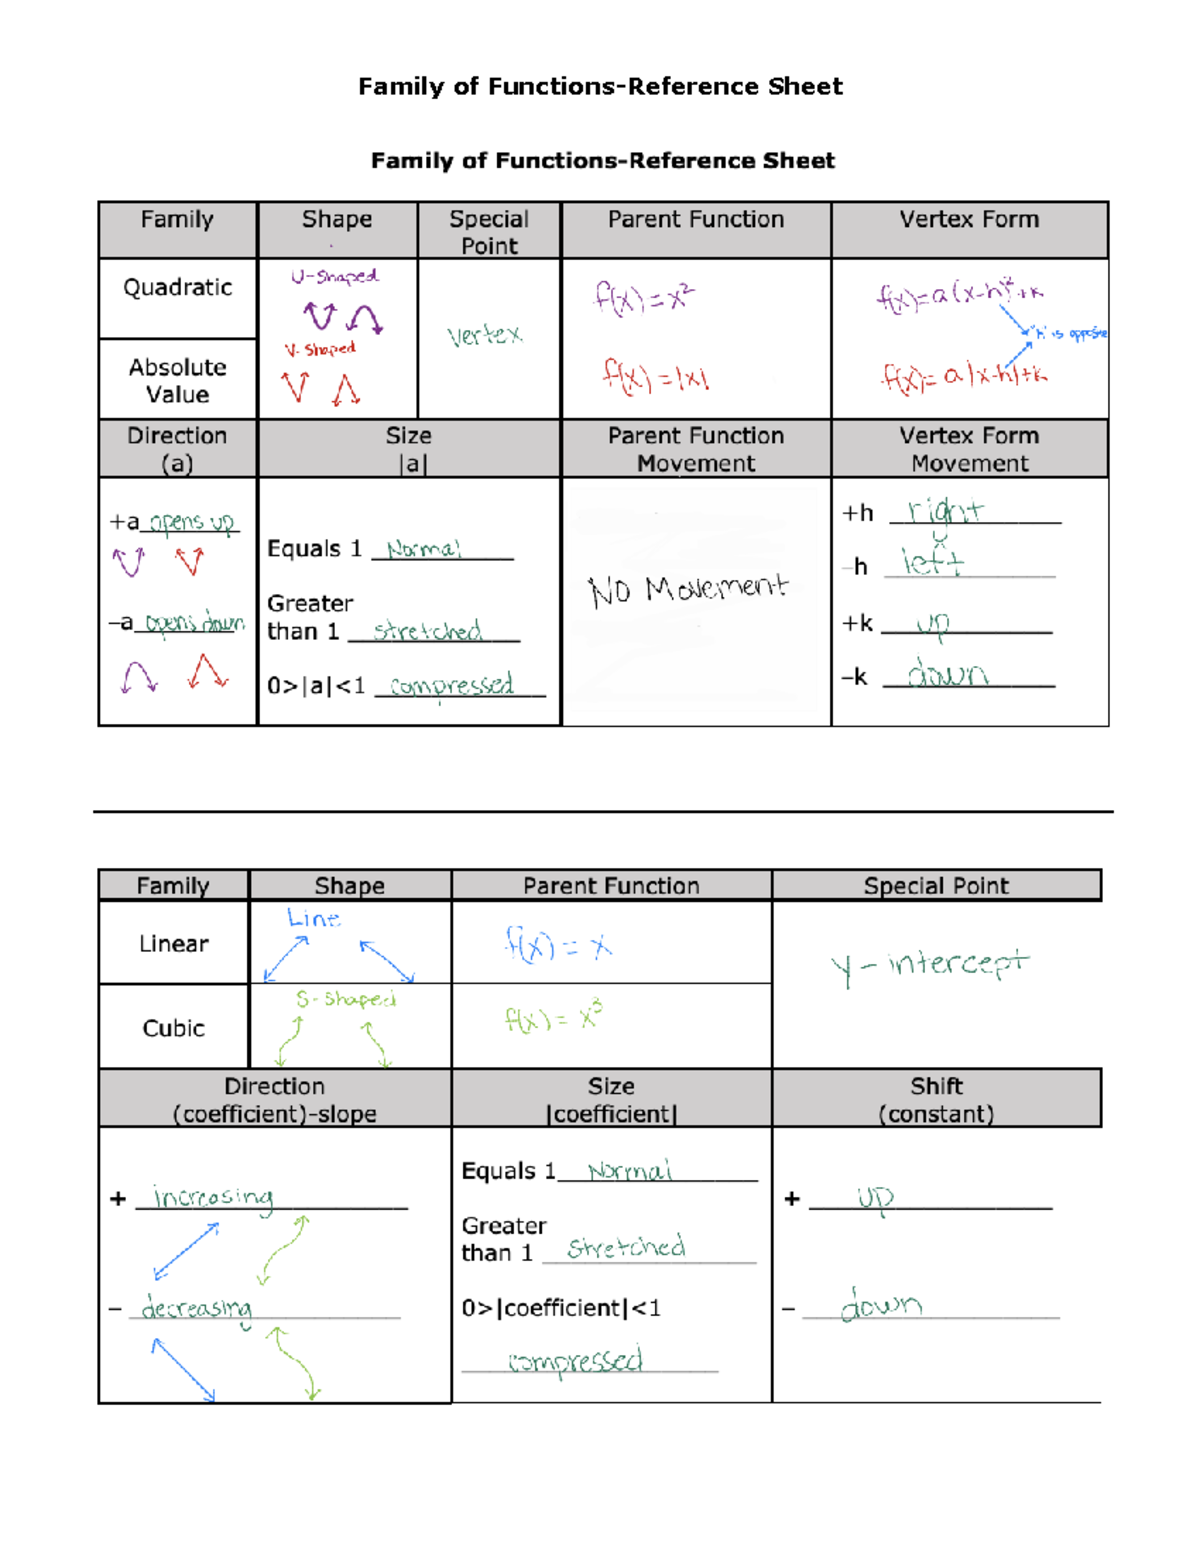 Family of Functions-Reference Sheet
Family of Functions-Reference Sheet
Family
Shape
Special
Point
Parent Function
Vertex Form
Quadratic
U-Shaped
f(x)=x²
f(x)=a(x-h)²+k
vertex
"h" is opposite
Absolute
Value
V-Shaped
f(x)=|x|
f(x)=a|x-h|+k
Direction
(a)
Size
|a|
Parent Function
Movement
Vertex Form
Movement
+a opens up
–a opens down
Equals 1 Normal
Greater
than 1 stretched
0>|a|<1 compressed
NO Movement
+h right
–h left
+k up
–k down
Family
Shape
Parent Function
Special Point
Linear
Line
f(x) = x
y-intercept
Cubic
S-shaped
f(x) = x³
Direction
(coefficient)-slope
Size
|coefficient|
Shift
(constant)
+ increasing
– decreasing
Equals 1 Normal
Greater
than 1 stretched
0>|coefficient|<1
compressed
+ up
– down